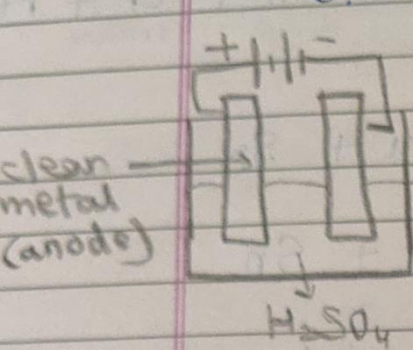 + -
clean
metal
(anode)
H₂SO₄